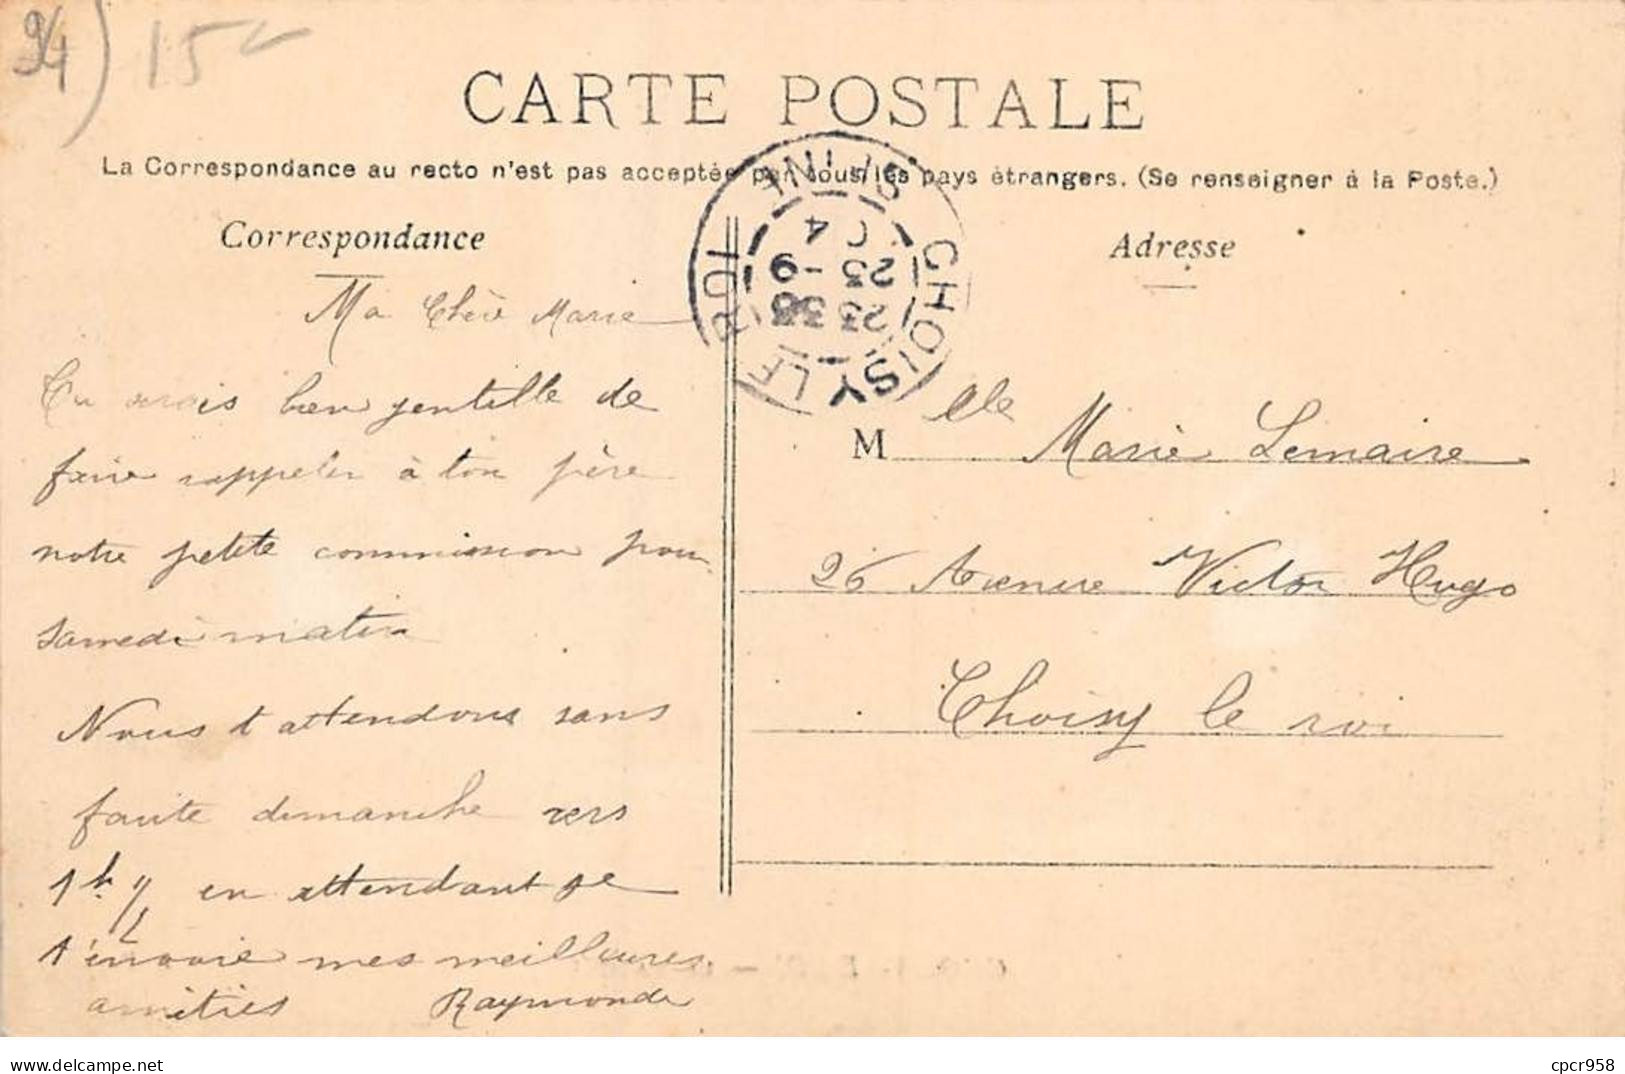 94) 15
CARTE POSTALE
La Correspondance au recto n'est pas acceptée par tous les pays étrangers. (Se renseigner à la Poste.)
CHOISY LE ROI
SEINE
23 - 9
Correspondance
Ma Chère Marie
Tu serais bien gentille de
faire rappeler à ton père
notre petite commission pour
samedi matin
Nous t'attendons sans
faute dimanche vers
1h 1/2 en attendant je
t'envoie mes meilleures
amitiés Raymonde
Adresse
Mlle Marie Lemaire
26 Avenue Victor Hugo
Choisy le roi
www.delcampe.net
cpcr958